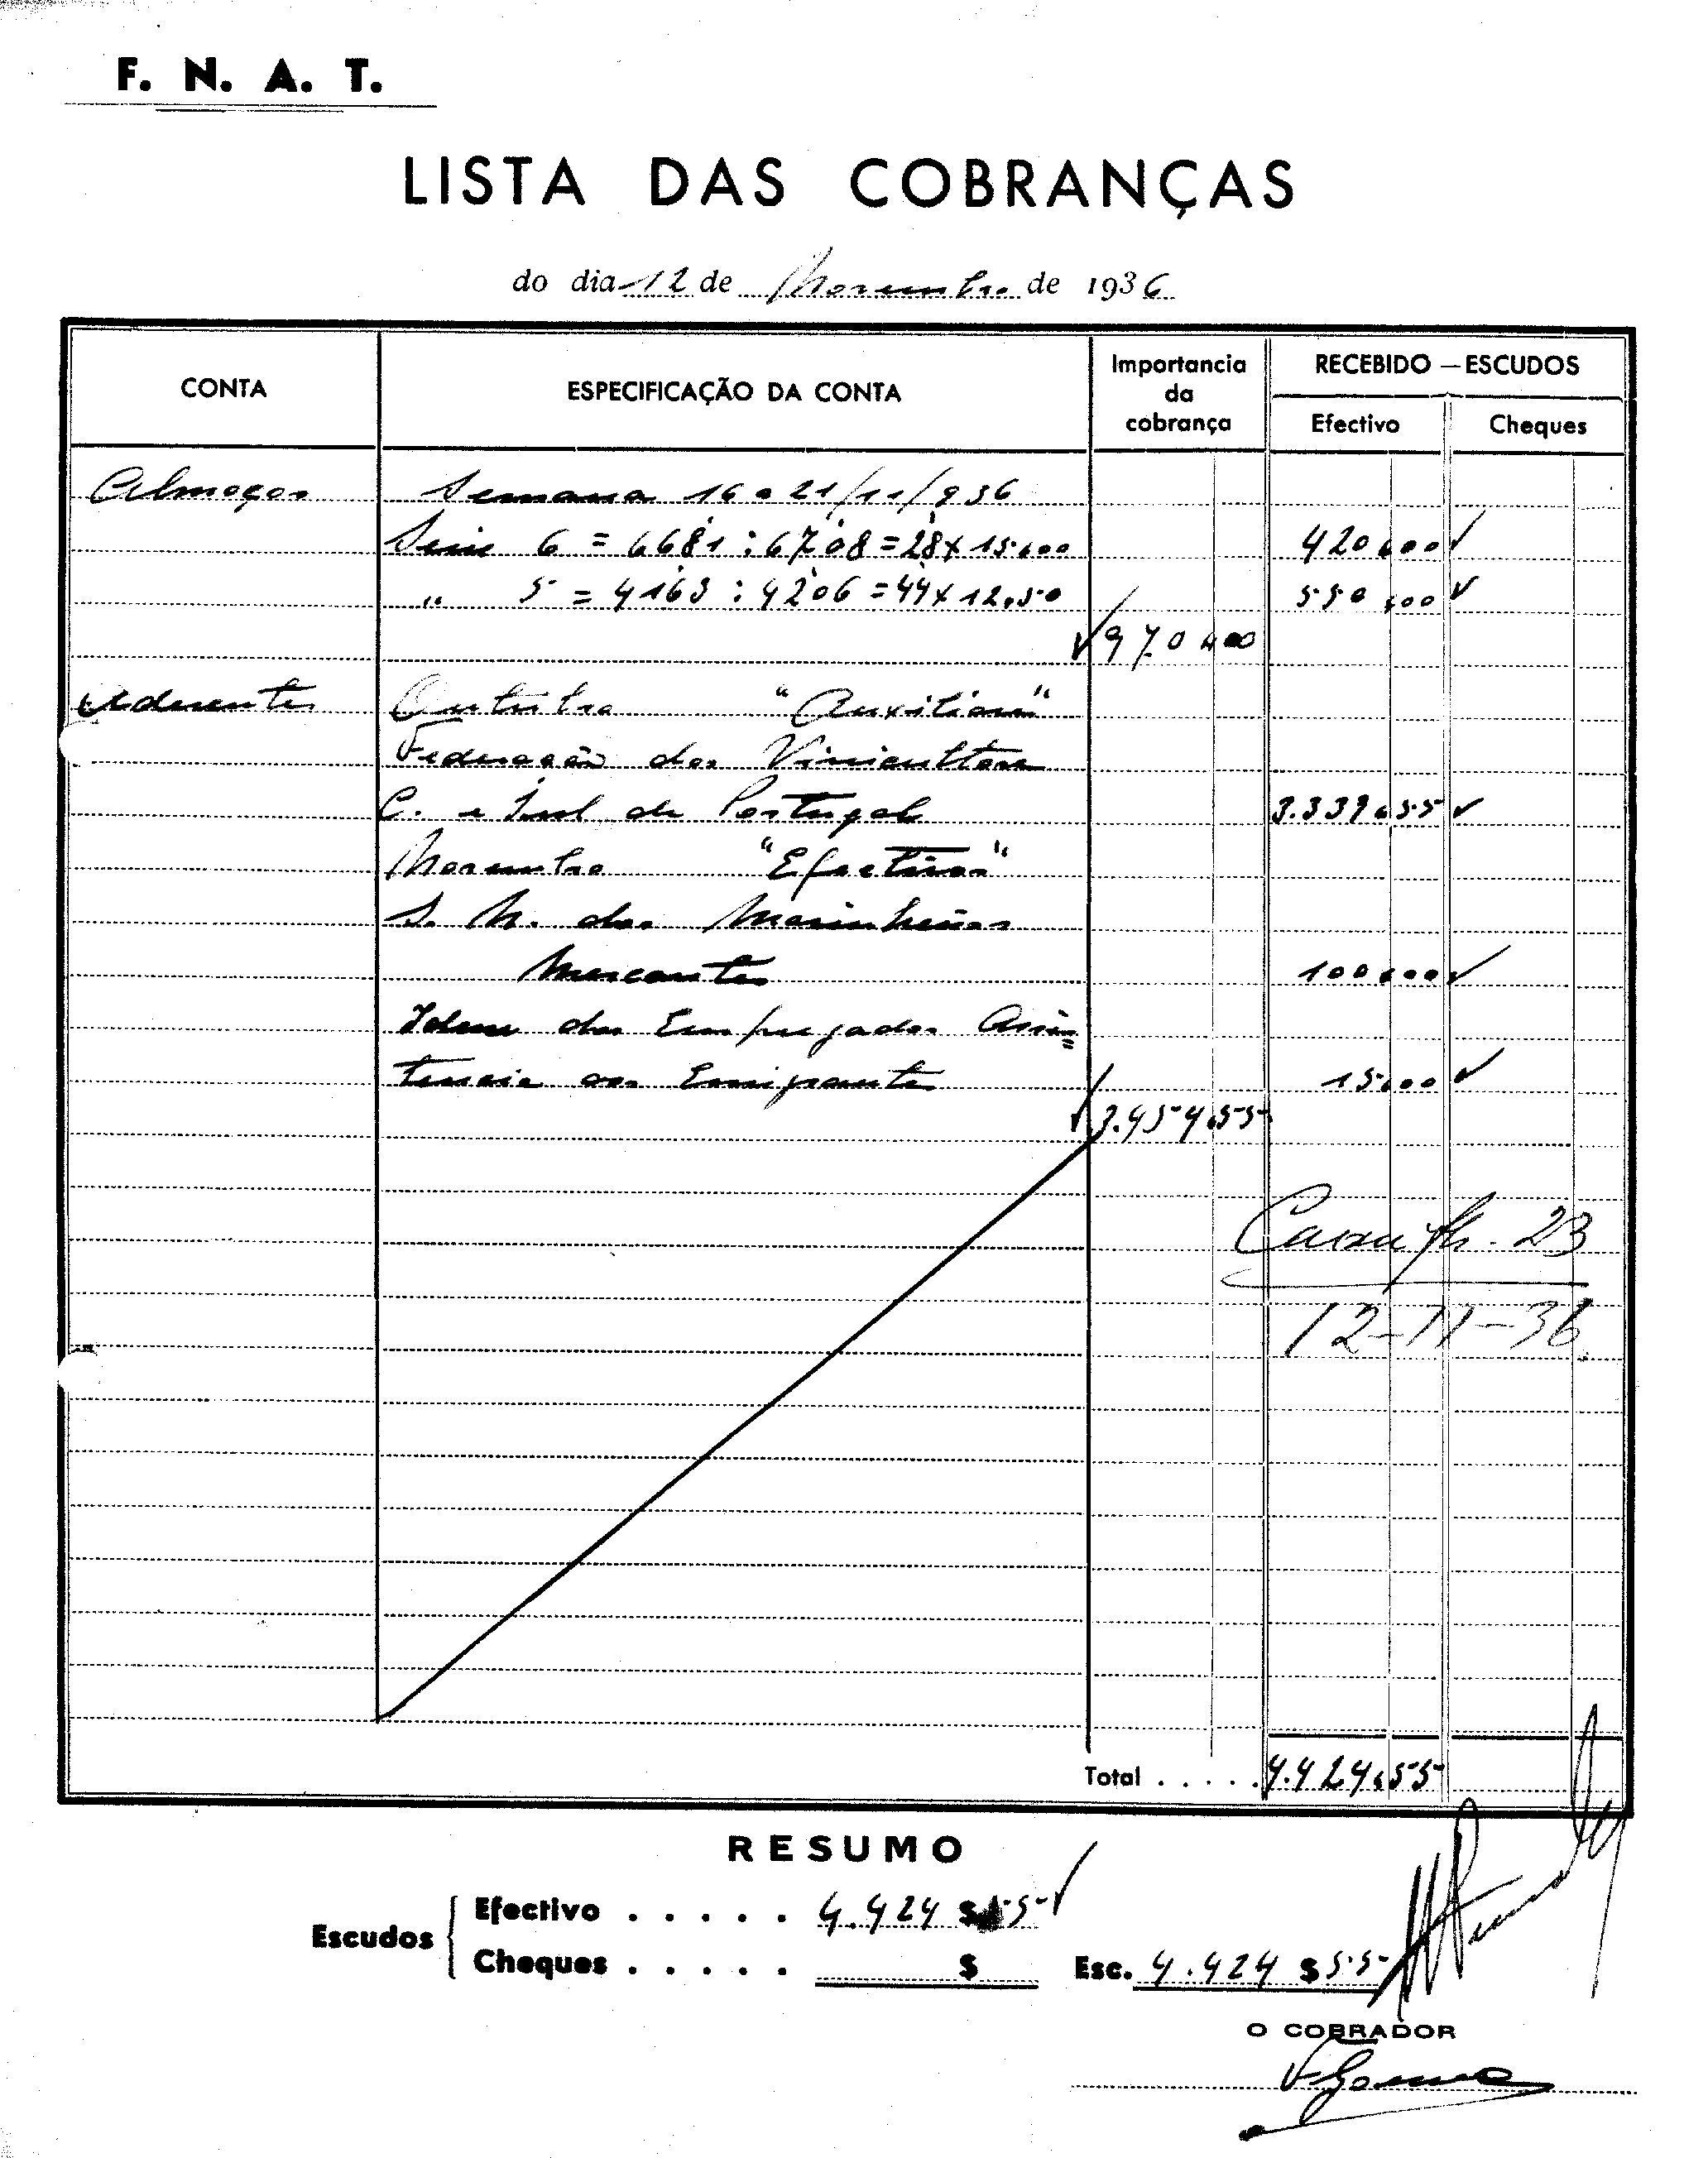 F. N. A. T.
LISTA DAS COBRANÇAS
do dia 12 de Novembro de 1936
CONTA ESPECIFICAÇÃO DA CONTA Importancia da cobrança RECEBIDO — ESCUDOS
Efectivo Cheques
Almoços Semana 16 a 21/11/936
Serie 6 = 6681 : 6708 = 28 x 15$00 420$00
" 5 = 4163 : 4206 = 44 x 12$50 550$00
970$00
Aderentes Outubro "Auxiliares"
Federação dos Vinicultores
C. e Sul de Portugal 3.339$55
Novembro "Efectivos"
S. N. dos Marinheiros
Mercantes 100$00
Idem dos Empregados Assis=
tencia aos Emigrantes 15$00
3.454$55
Caixa fls. 23
12-11-36
Total . . . . . 4.424$55
RESUMO
Escudos Efectivo . . . . . 4.424 $ 55
Cheques . . . . . $ Esc. 4.424 $ 55
O COBRADOR